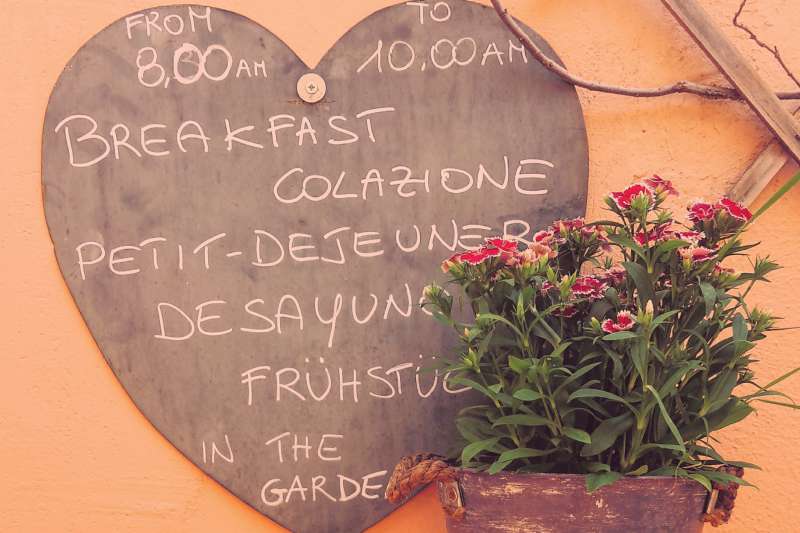 FROM TO
8,00 AM 10,00 AM
BREAKFAST
COLAZIONE
PETIT-DEJEUNER
DESAYUN
FRÜHSTÜC
IN THE
GARDE